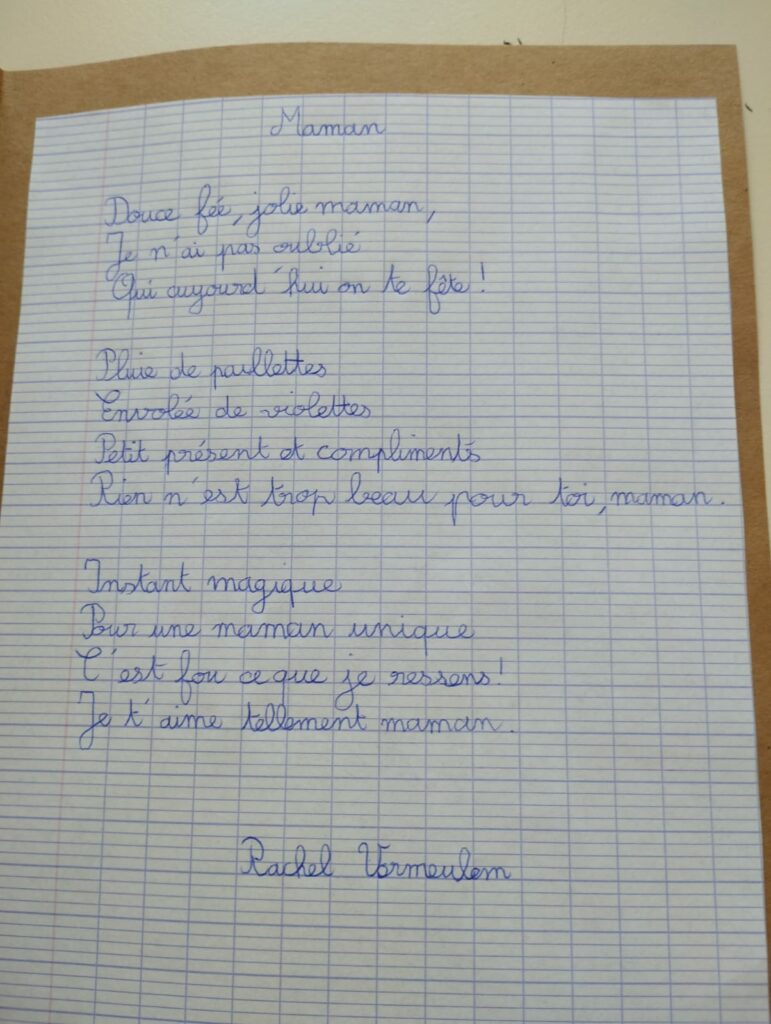 Maman
Douce fée, jolie maman,
Je n'ai pas oublié
Qui aujourd'hui on te fête !
Pluie de paillettes
Envolée de violettes
Petit présent et compliments
Rien n'est trop beau pour toi, maman.
Instant magique
Pour une maman unique
C'est fou ce que je ressens !
Je t'aime tellement maman.
Rachel Vermeulem